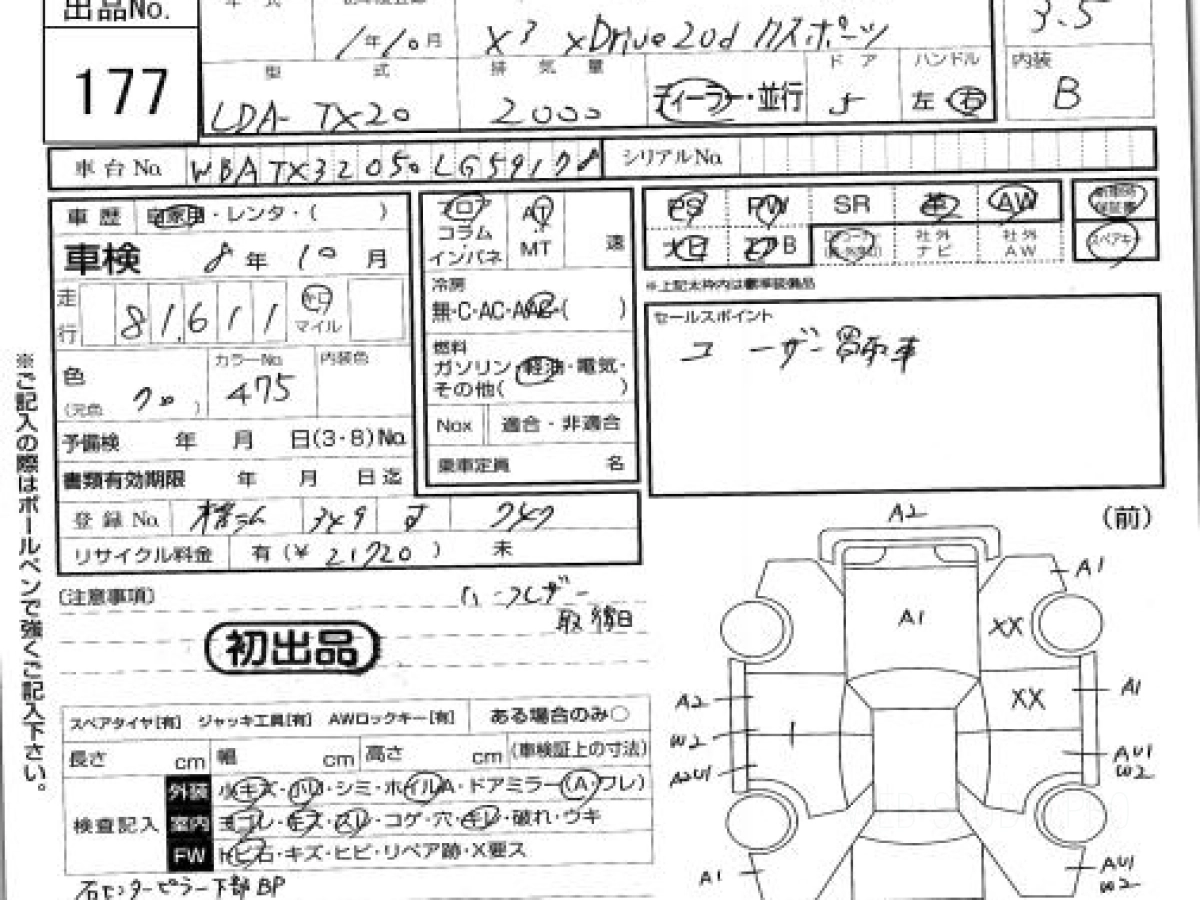 出品No.
177
年 月
X3 xDrive20d Mスポーツ
3.5
型 式
排 気 量
ドア
ハンドル
内装
LDA-TX20
2000
ディーラー・並行
5
左 右
B
車台No.
WBATX32050LG59178
シリアルNo.
車歴
自家用・レンタ・( )
車検 8年 10月
走行 81,611 キロ マイル
色
(元色 )
カラーNo. 475
内装色
予備検 年 月 日(3・8)No.
書類有効期限 年 月 日迄
登録No. 349
リサイクル料金 有(¥ 21720 ) 未
フロア
コラム
インパネ
AT
MT
速
冷房
無・C・AC・AAC・( )
燃料
ガソリン・軽油・電気・
その他( )
Nox 適合・非適合
乗車定員 名
PS PW SR 革 AW
社外ナビ
社外AW
スペアキー
※上記太枠内は標準装備品
セールスポイント
ユーザー買取車
※ご記入の際はボールペンで強くご記入下さい。
(注意事項)
初出品
スペアタイヤ[有] ジャッキ工具[有] AWロックキー[有] ある場合のみ○
長さ cm 幅 cm 高さ cm (車検証上の寸法)
検査記入
外装 小キズ・小凹・シミ・ホイルA・ドアミラー(A・ワレ)
室内 ヨゴレ・キズ・スレ・コゲ・穴・キレ・破れ・ウキ
FW トビ石・キズ・ヒビ・リペア跡・X要ス
右センターピラー下部BP
(前)
A2
A1
A1
XX
XX
A2
A1
W2
AU1
W2
A2U1
A1
AU1
W2